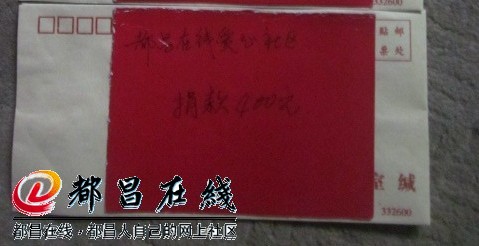 332600
贴邮
票处
都昌在线爱心社区
捐款400元
室缄
332600
都昌在线
都昌在线,都昌人自己的网上社区